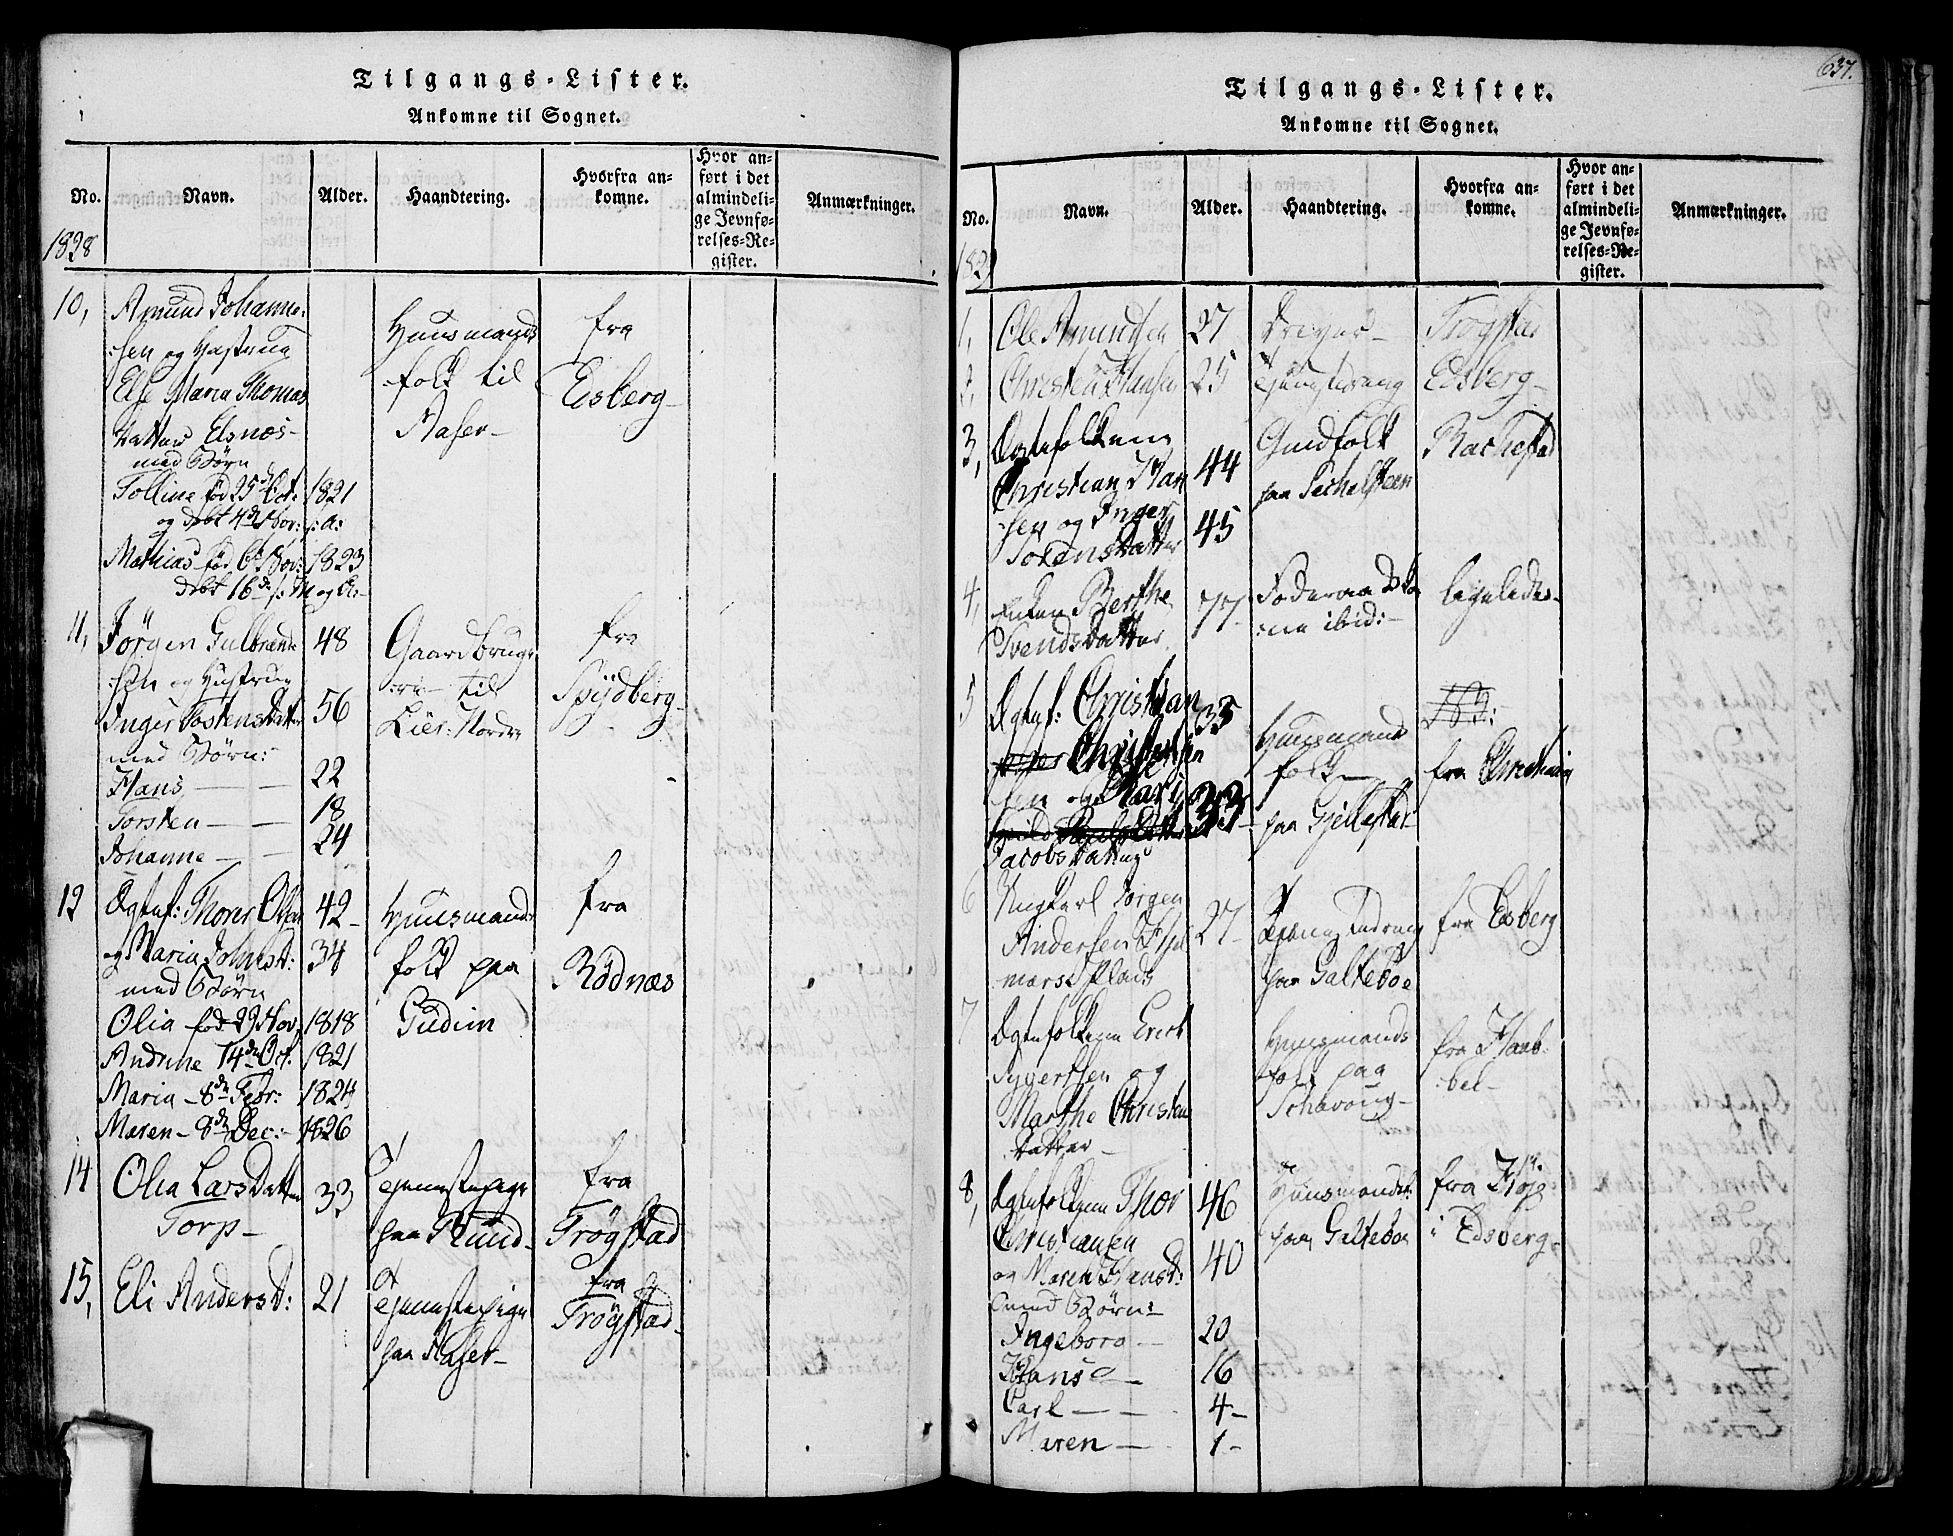 Tilgangs-Lister.
Ankomne til Sognet.
No.
Navn.
Alder.
Haandtering.
Hvorfra an-
komne.
Hvor an-
ført i det
almindeli-
ge Jevnfø-
relses-Re-
gister.
Anmærkninger.
1828
10,
Amund Johanne-
sen og Hustrue
Else Maria Thomas
Datter Elsnæs-
med Børn
Tolline fød 25de Oct: 1821
og døbt 4de Nov: s: a:
Mathias fød 6te Nov: 1823
døbt 16de
Huusmands
folk til
Raser-
fra
Edsberg-
11,
Jørgen Gulbrand- 48
sen og Hustrue
Inger Tostensdatter 56
med Børn:
Hans - - 22
Torsten - - 18
Johanne - - 24
Gaardbruge
re til
Lier: Nordre
fra
Spydberg-
12
Ægtef: Thorer Olsen 42-
og Maria Johnsd: 34
med Børn
Olia fød 29 Nov, 1818
Andrine 14de Oct: 1821
Maria - 8de Febr: 1824
Maren - 8de Dec: - 1826
Huusmands
folk paa
Gudim
fra
Rødnæs
14
Olia Larsdatter 33
Torp-
Tjenestepige
paa Rund-
fra
Trøgstad
15,
Eli Andersd: 21
Tjenestepige
paa Raser-
fra
Trøgstad-
637.
Tilgangs-Lister.
Ankomne til Sognet.
No.
Navn.
Alder.
Haandtering.
Hvorfra an-
komne.
Hvor an-
ført i det
almindeli-
ge Jevnfø-
relses-Re-
gister.
Anmærkninger.
1829
1,
Ole Amundsen 27
Trøgstad
2,
Christen Hansen 25
Tjenestedreng
Edsberg-
3,
Ægtefolkene
Christian Han 44
sen og Inger
Torensdatter 45
paa
Rachestad
4,
Enken Berthe 77-
Svendsdatter
Foderaads Ko
ne ibid:-
ligeledes-
5
Ægtef: Christian 35
Christensen
sen og Mari 33
Jacobsdatter
Huusmands
folk-
paa Gjellestad
fra Christiania
6
Ungkarl Jørgen 27
Andersen Hjel
mars Plads
Tjenestedreng
paa Galteboe
fra Edsberg
7
Ægtefolkene Erick
Syversen og
Marthe Christens
datter-
Huusmands
folk paa
fra Haab-
bel-
8,
Ægtefolkene Thor 46
Christiansen
og Maren Hansd: 40
med Børn:
Ingeborg - 20
Hans - 16
Carl - - 4-
Maren - 1-
Huusmandsf.
paa Galteboe
fra Høje
i Edsberg-